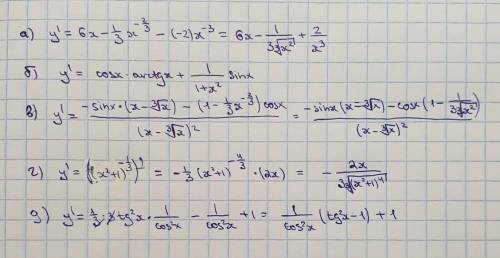 а) y' = 6x - 1/3 x^(-2/3) - (-2)x^(-3) = 6x - 1/(3∛x²) + 2/x³
б) y' = cosx · arctgx + 1/(1+x²) sinx
в) y' = (-sinx · (x-∛x) - (1 - 1/3 x^(-2/3)) cosx)/(x-∛x)² = (-sinx (x-∛x) - cosx (1 - 1/(3∛x²)))/(x-∛x)²
г) y' = ((x²+1)^(-1/3))' = -1/3 (x²+1)^(-4/3) · (2x) = - 2x/(3∛(x²+1)⁴)
д) y' = 1/3 · 3 tg²x · 1/cos²x - 1/cos²x + 1 = 1/cos²x (tg²x - 1) + 1